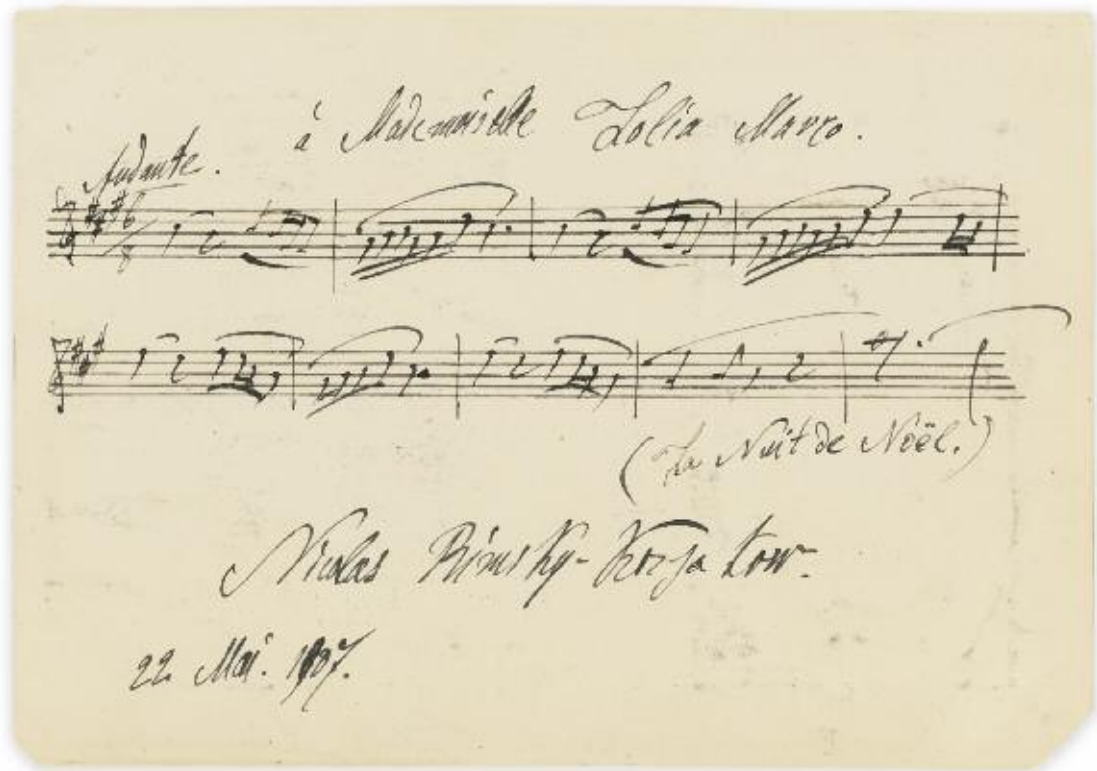 à Mademoiselle Lolia Marco.
Andante.
6/8
(La Nuit de Noël.)
Nicolas Rimsky-Korsakow.
22 Mai. 1907.